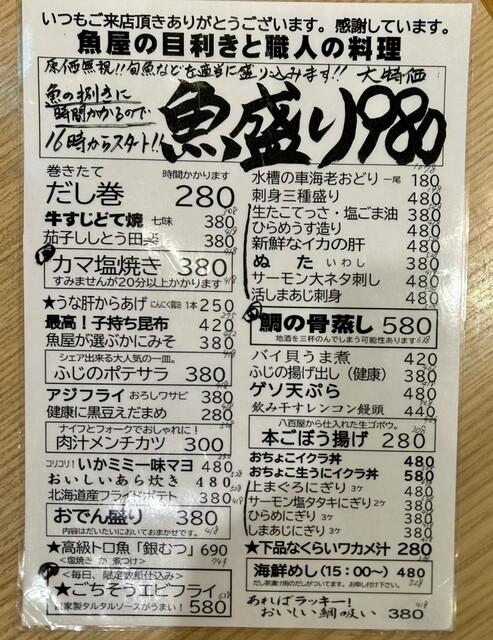 いつもご来店頂きありがとうございます。感謝しています。
魚屋の目利きと職人の料理
原価無視!!旬魚などを適当に盛り込みます!! 大特価
魚の捌きに
時間かかるので
16時からスタート!!
魚盛り980
巻きたて 時間かかります
だし巻 280
牛すじどて焼 七味 380
茄子ししとう田楽 380
カマ塩焼き 380
すみませんが20分以上かかります
★うな肝からあげ にんにく醤油 1本 250
最高!子持ち昆布 420
魚屋が選ぶかにみそ 380
シェア出来る大人気の一皿。
ふじのポテサラ 380
アジフライ おろしワサビ 380
健康に黒豆えだまめ 280
ナイフとフォークでおしゃれに!
肉汁メンチカツ 300
コリコリ!いかミミ一味マヨ 480
おいしいあら炊き 480
北海道産フライドポテト 380
おでん盛り 380
内容はだいたいにおいておまかせです。
★高級トロ魚「銀むつ」690
<塩焼き か 煮つけ>
<毎日、限定数組仕込み>
★ごちそうエビフライ
自家製タルタルソースがうまい! 580
水槽の車海老おどり 一尾 180
刺身三種盛り 480
生たこてっさ・塩ごま油 380
ひらめうす造り 480
新鮮なイカの肝 480
ぬた いわし 380
サーモン大ネタ刺し 480
活しまあじ刺身 480
鯛の骨蒸し 580
地酒を三杯のんでしまう可能性あります
バイ貝うま煮 420
ふじの揚げ出し(健康) 380
ゲソ天ぷら 480
飲み干すレンコン饅頭 440
八百屋から仕入れた生ゴボウ。
本ごぼう揚げ 280
おちょこイクラ丼 480
おちょこ生うにイクラ丼 580
上まぐろにぎり 3ケ 480
サーモン塩タタキにぎり 2ケ 380
ひらめにぎり 3ケ 480
しまあじにぎり 3ケ 480
★下品なくらいワカメ汁 280
海鮮めし(15:00〜) 480
だし茶漬け用のだしがついてます。お申し付け下さい。
あればラッキー!
おいしい鯛吸い 380